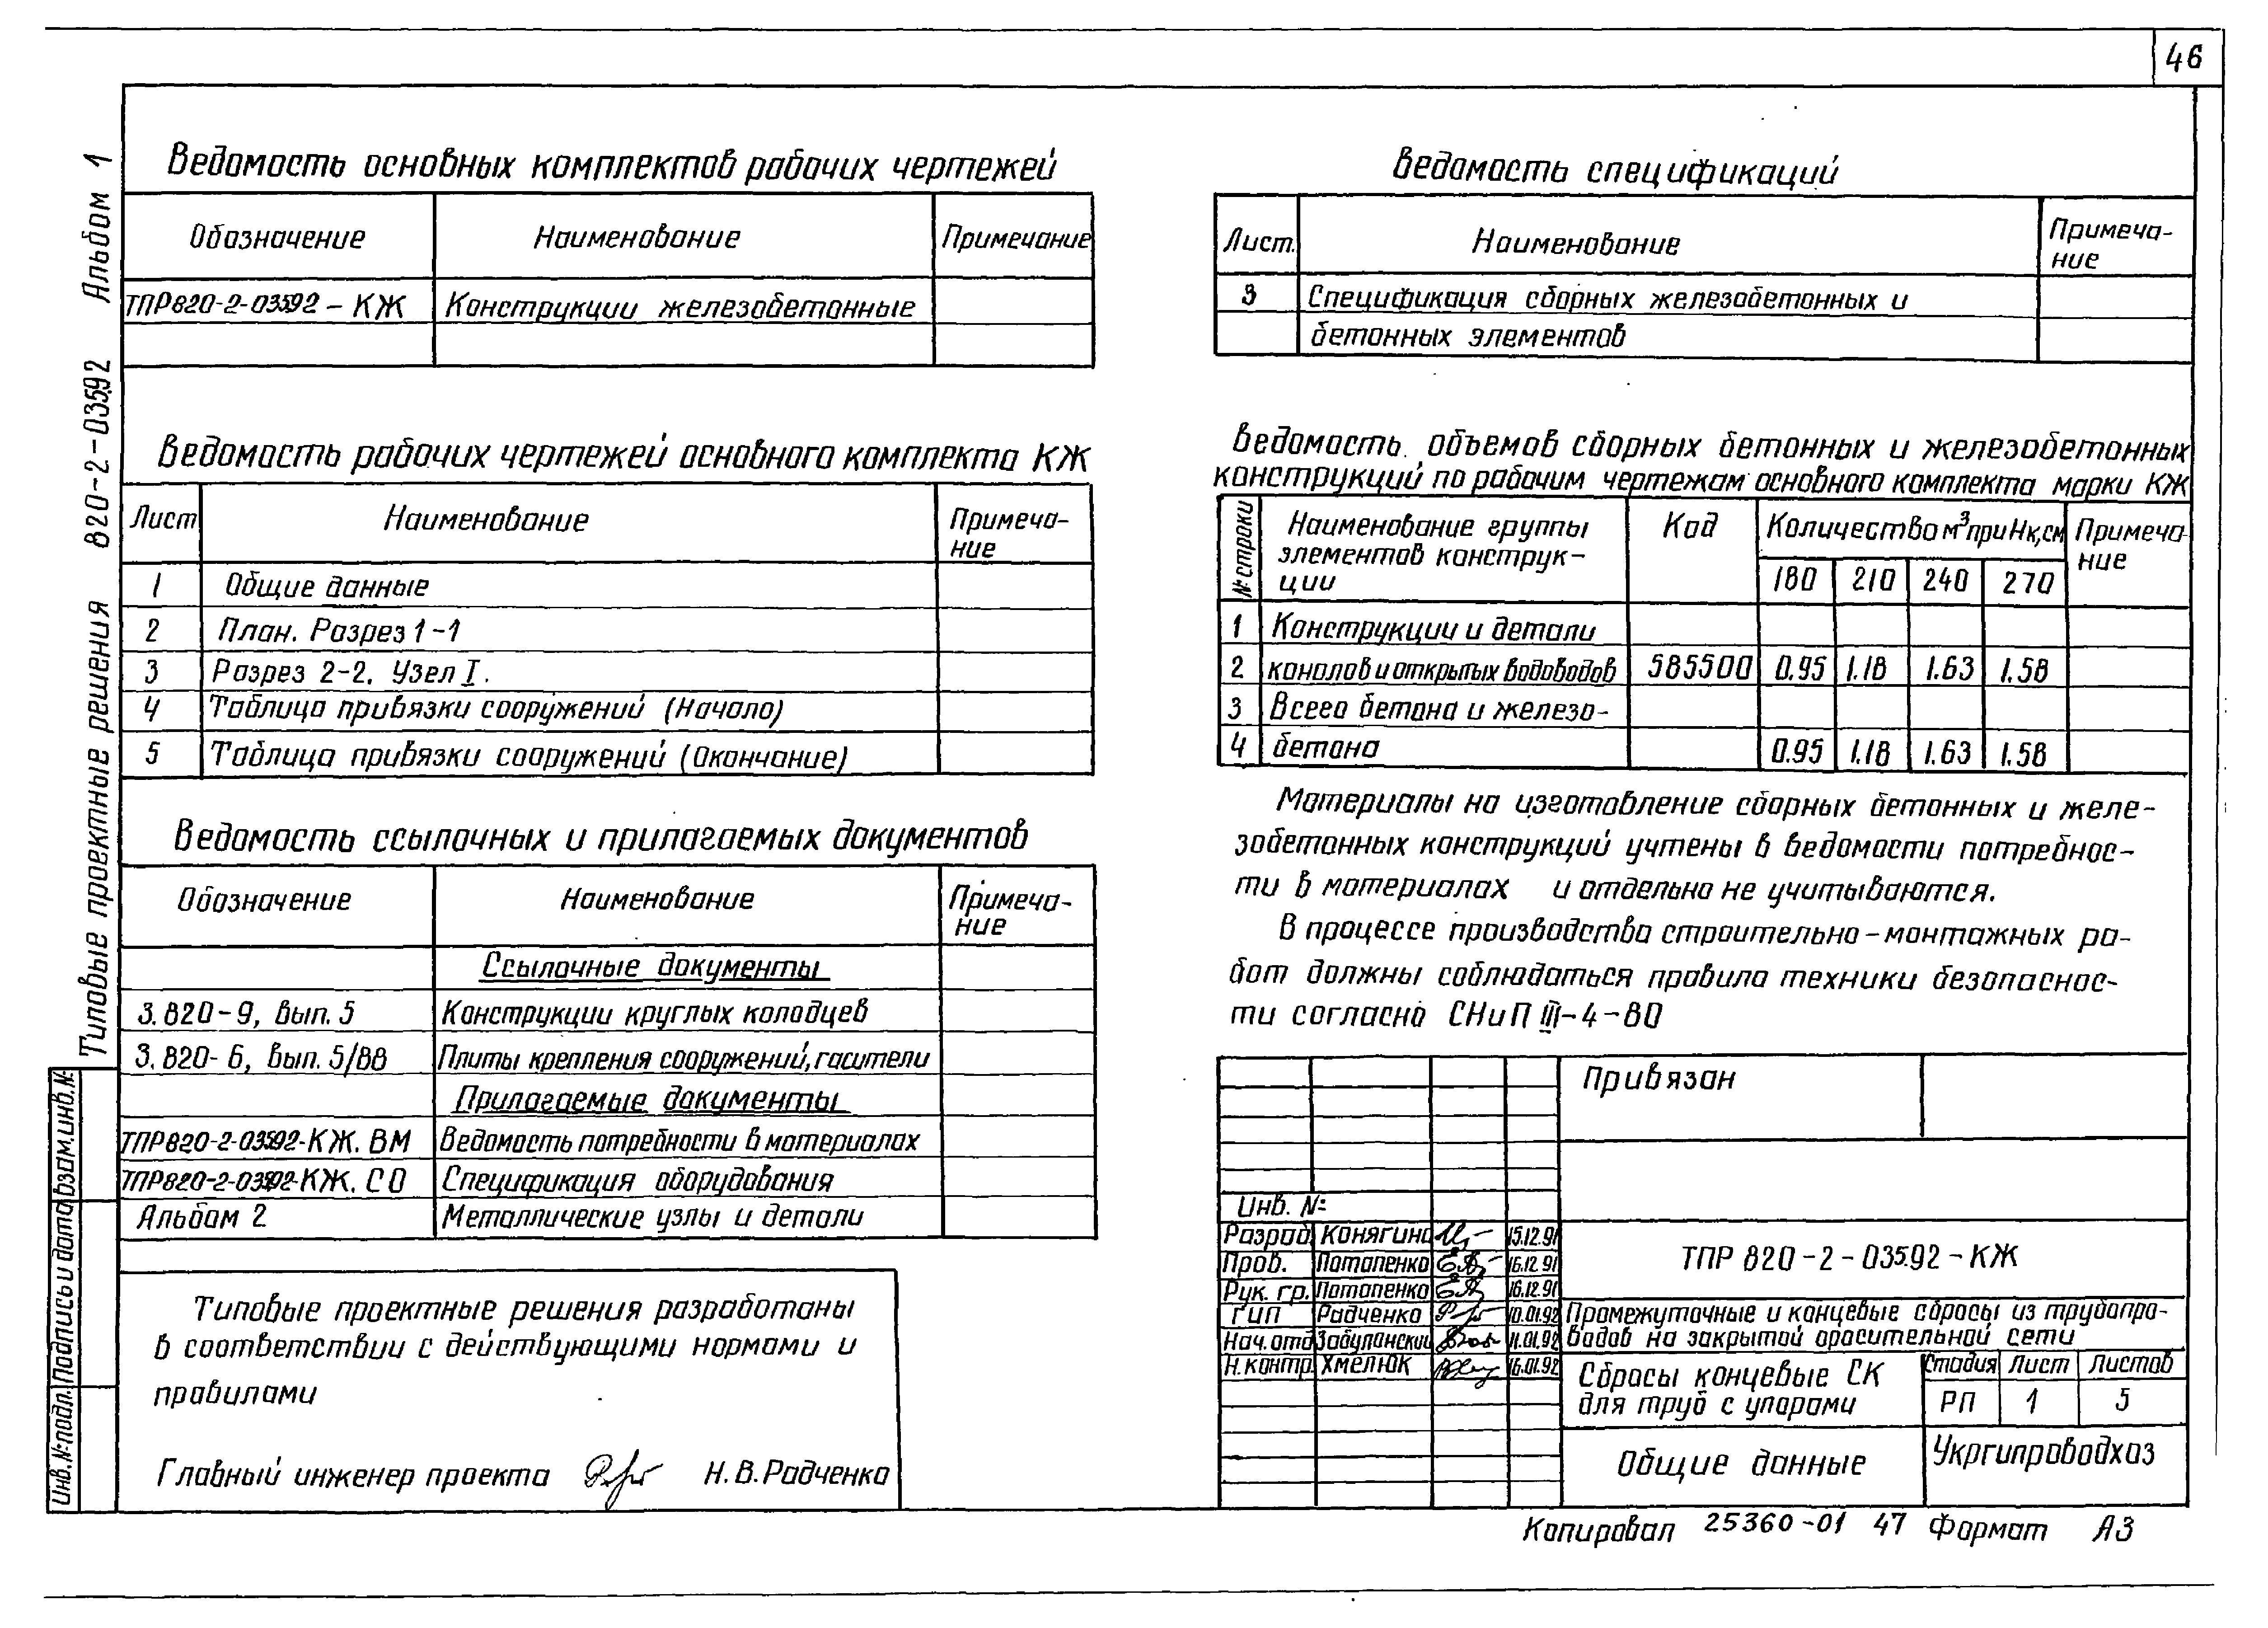 46
Альбом 1
820-2-035.92
Типовые проектные решения
Ведомость основных комплектов рабочих чертежей
Обозначение Наименование Примечание
ТПР 820-2-035.92-КЖ Конструкции железобетонные
Ведомость рабочих чертежей основного комплекта КЖ
Лист Наименование Примеча-
ние
1 Общие данные
2 План. Разрез 1-1
3 Разрез 2-2. Узел I.
4 Таблица привязки сооружений (Начало)
5 Таблица привязки сооружений (Окончание)
Ведомость ссылочных и прилагаемых документов
Обозначение Наименование Примеча-
ние
Ссылочные документы
3.820-9, вып. 5 Конструкции круглых колодцев
3.820-6, вып. 5/88 Плиты крепления сооружений, гасители
Прилагаемые документы
ТПР 820-2-035.92-КЖ.ВМ Ведомость потребности в материалах
ТПР 820-2-035.92-КЖ.СО Спецификация оборудования
Альбом 2 Металлические узлы и детали
Типовые проектные решения разработаны
в соответствии с действующими нормами и
правилами
Главный инженер проекта Н.В.Радченко
Взам.инв.№
Подпись и дата
Инв.№подл.
Ведомость спецификаций
Лист. Наименование Примеча-
ние
3 Спецификация сборных железобетонных и
бетонных элементов
Ведомость объемов сборных бетонных и железобетонных
конструкций по рабочим чертежам основного комплекта марки КЖ
№ строки Наименование группы Код Количество м³ при Нк,см Примеча-
элементов конструк- ние
ции 180 210 240 270
1 Конструкции и детали
2 каналов и открытых водоводов 585500 0.95 1.18 1.63 1.58
3 Всего бетона и железо-
4 бетона 0.95 1.18 1.63 1.58
Материалы на изготовление сборных бетонных и желе-
зобетонных конструкций учтены в ведомости потребнос-
ти в материалах и отдельно не учитываются.
В процессе производства строительно-монтажных ра-
бот должны соблюдаться правила техники безопаснос-
ти согласно СНиП III-4-80
Привязан
Инв. №
Разраб. Конягина 15.12.91
Пров. Потапенко 16.12.91
Рук. гр. Потапенко 16.12.91
ГИП Радченко 10.01.92
Нач.отд Забуланский 11.01.92
Н.контр. Хмелюк 16.01.92
ТПР 820-2-035.92-КЖ
Промежуточные и концевые сбросы из трубопро-
водов на закрытой оросительной сети
Сбросы концевые СК
для труб с упорами
Стадия Лист Листов
РП 1 5
Общие данные
Укргипроводхоз
Копировал 25360-01 47 Формат А3